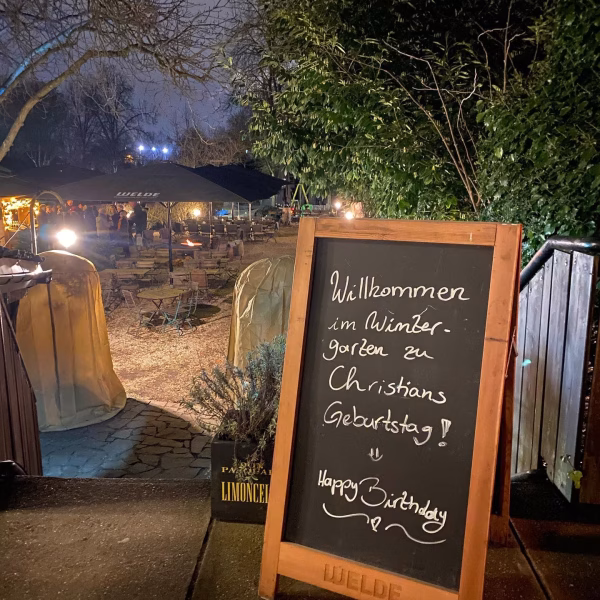 WELDE
Willkommen
im Winter-
garten zu
Christians
Geburtstag!
Happy Birthday
LIMONCE
WELDE